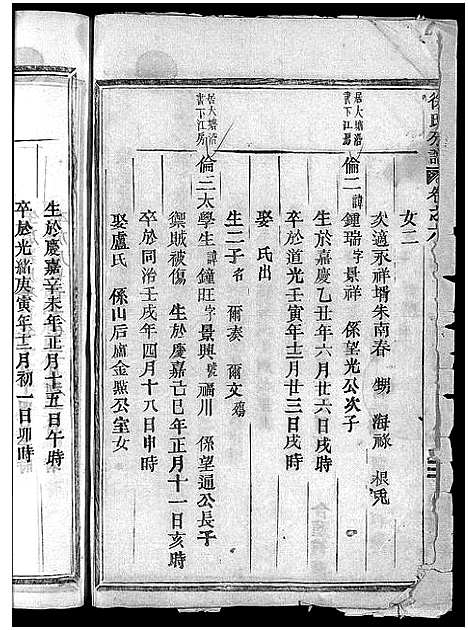 徐氏宗譜 卷之八
女二
次適永祥壻朱南春 甥 海祿 根兎
居大塘沿
書下江房
倫二 諱鍾瑞 字景祥 係望光公次子
生於嘉慶乙丑年六月廿六日戌時
卒於道光壬寅年十二月廿三日戌時
娶 氏 出
生二子 名 爾奏 爾文殤
居大塘沿
書下江房
倫三 太學生 諱鐘旺 字景興 號福川 係望通公長子
禦賊被傷 生於慶嘉己巳年正月十一日亥時
卒於同治壬戌年四月十八日申時
娶盧氏 係山后盧金點公室女
生於慶嘉辛未年正月十五日午時
卒於光緒庚寅年十二月初一日卯時